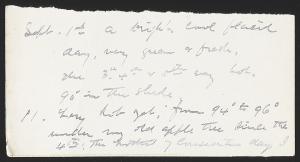 Sept. 1st A bright cool placid
day, very green & fresh.
The 3d. 4th & 5th very hot.
90° in the shade.
11. Very hot yet; from 94° to 96°
under my old apple tree since the
4th; the hottest of consecutive days I